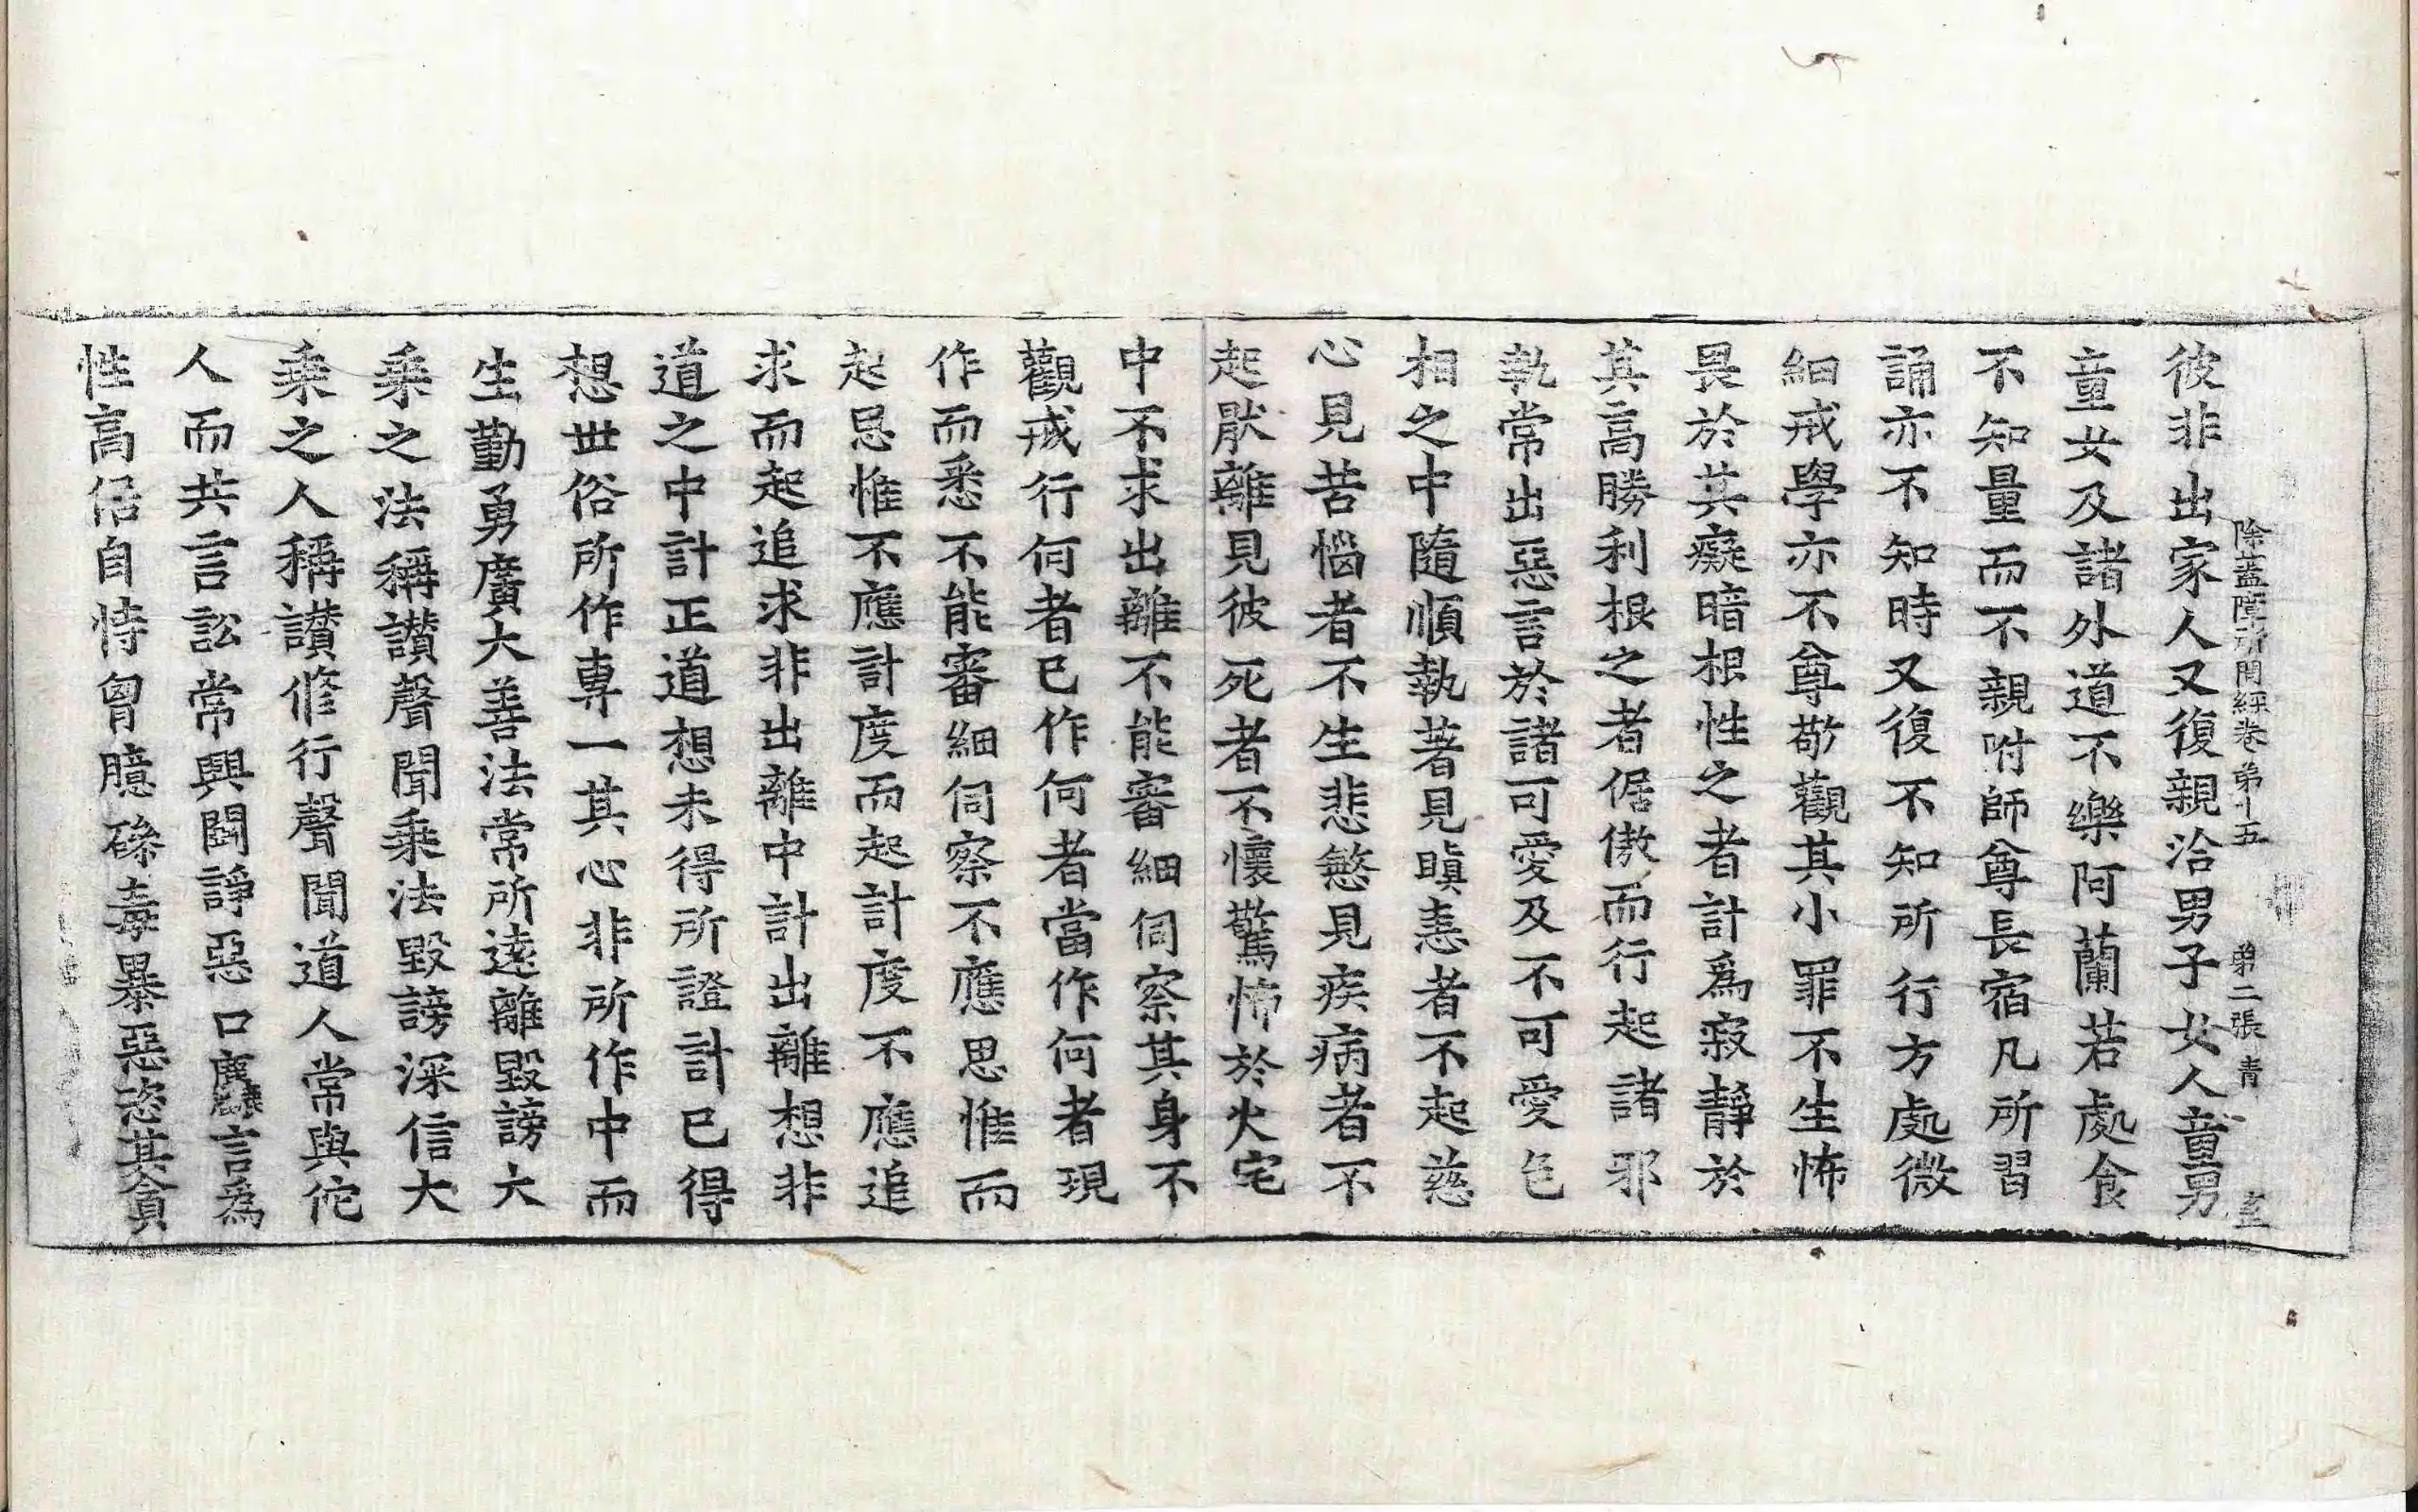 除蓋障所問經卷第十五 第二張 青
彼非出家人又復親洽男子女人童男
童女及諸外道不樂阿蘭若處食
不知量而不親附師尊長宿凡所習
誦亦不知時又復不知所行方處微
細戒學亦不尊敬觀其小罪不生怖
畏於其癡暗根性之者計爲寂靜於
其高勝利根之者倨傲而行起諸邪
執常出惡言於諸可愛及不可愛色
相之中隨順執著見瞋恚者不起慈
心見苦惱者不生悲慜見疾病者不
起猒離見彼死者不懷驚怖於火宅
中不求出離不能審細伺察其身不
觀戒行何者已作何者當作何者現
作而悉不能審細伺察不應思惟而
起思惟不應計度而起計度不應追
求而起追求非出離中計出離想非
道之中計正道想未得所證計已得
想世俗所作專一其心非所作中而
生勤勇廣大善法常所遠離毀謗大
乘之法稱讃聲聞乘法毀謗深信大
乘之人稱讃修行聲聞道人常與佗
人而共言訟常興鬪諍惡口麤言爲
性高倨自恃胷臆磣毒暴惡恣其貪